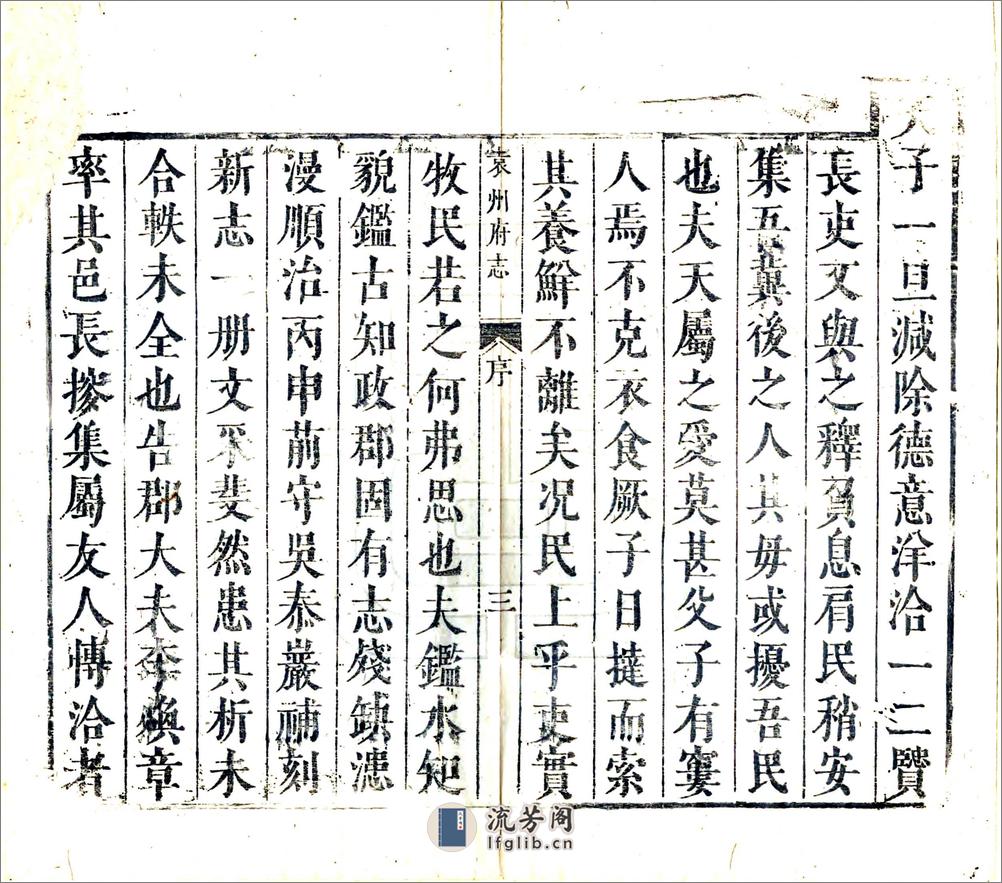 天子一旦減除德意洋洽一二賢
長吏又與之釋負息肩民稍安
集吾冀後之人其毋或擾吾民
也夫天屬之愛莫甚父子有窶
人焉不克衣食厥子日撻而索
其養鮮不離矣况民上乎吏實
袁州府志 序 三
牧民若之何弗思也夫鑑水知
貌鑑古知政郡固有志殘缺漶
漫順治丙申前守吳泰巖補刻
新志一册文采斐然患其析未
合軼未全也告郡大夫李煥章
率其邑長摉集屬友人慱洽者
流芳阁
lfglib.cn